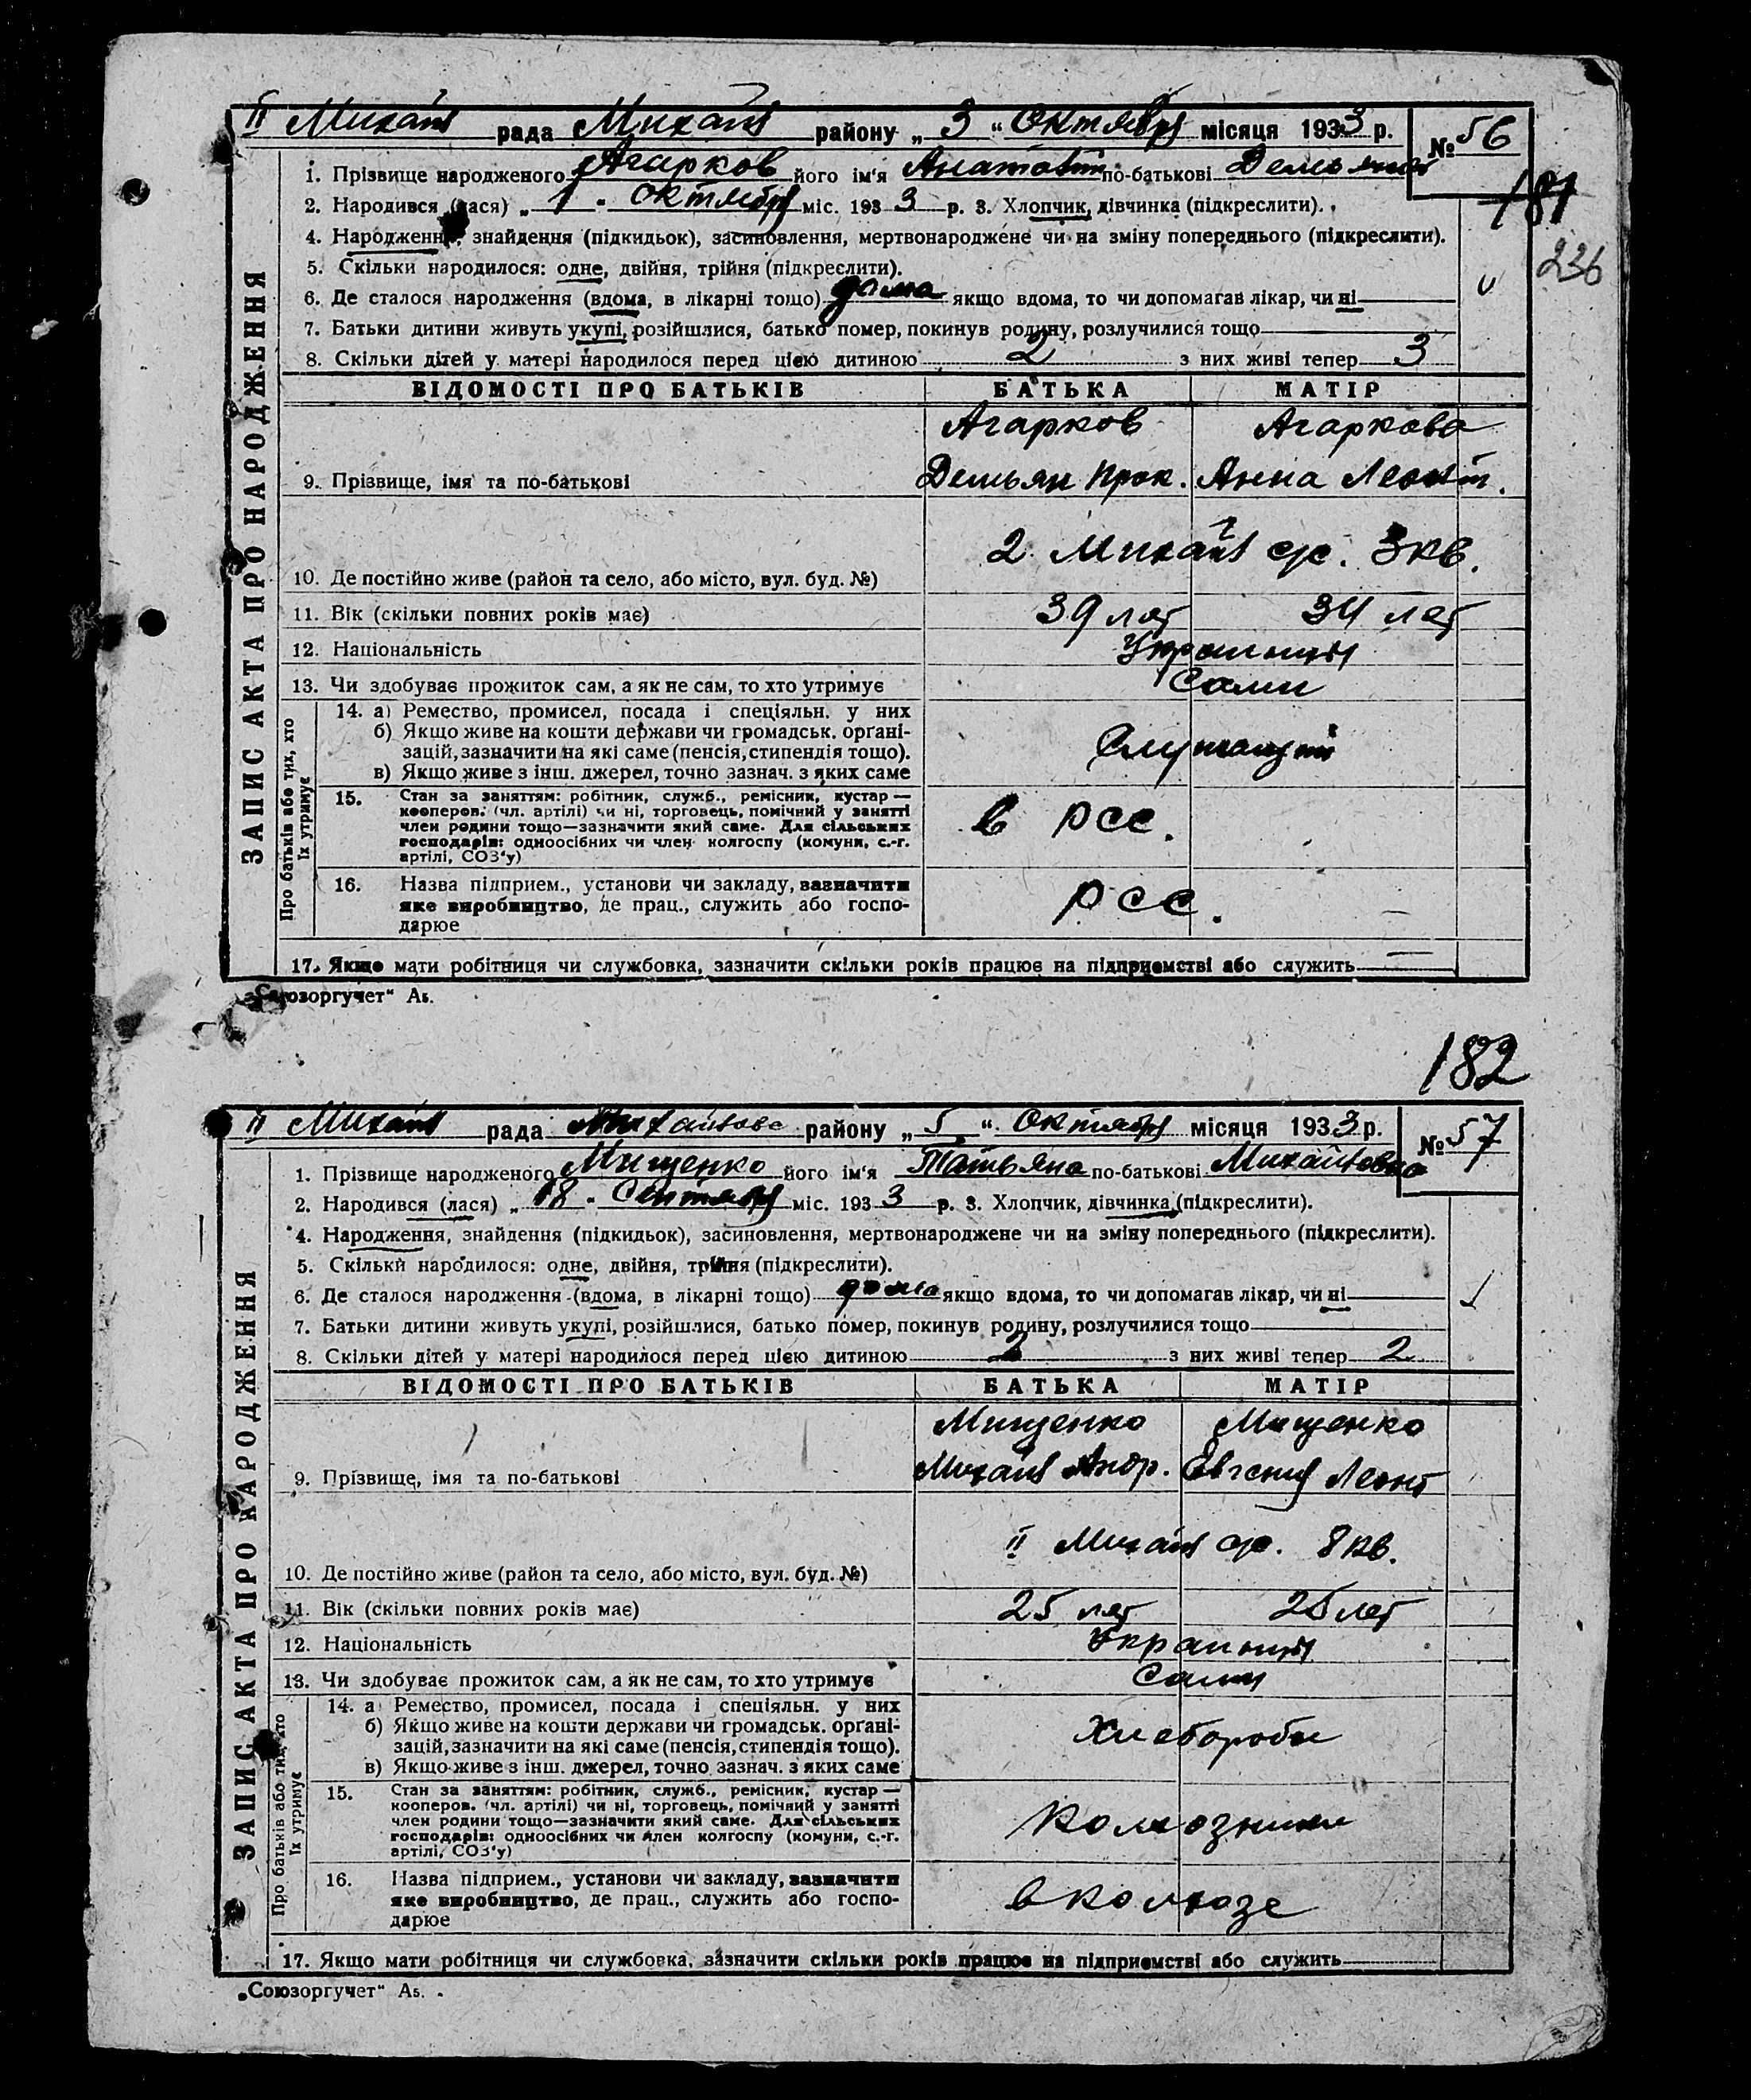 II Михайл рада Михайл району „ 3 “ Октября місяця 1933 р. № 56
1. Прізвище народженого Агарков його ім'я Анатолий по-батькові Демьянов
181
2. Народився (лася) „ 1 - октября міс. 1933 р. 3. Хлопчик, дівчинка (підкреслити).
4. Народження, знайдення (підкидьок), засиновлення, мертвонароджене чи на зміну попереднього (підкреслити).
236
5. Скільки народилося: одне, двійня, трійня (підкреслити).
6. Де сталося народження (вдома, в лікарні тощо) дома якщо вдома, то чи допомагав лікар, чи ні
7. Батьки дитини живуть укупі, розійшлися, батько помер, покинув родину, розлучилися тощо
8. Скільки дітей у матері народилося перед цією дитиною 2 з них живі тепер 3
ЗАПИС АКТА ПРО НАРОДЖЕННЯ
ВІДОМОСТІ ПРО БАТЬКІВ БАТЬКА МАТІР
Агарков Агаркова
9. Прізвище, імя та по-батькові Демьян Прок. Анна Леонт.
2 Михайл с/с. 3 кв.
10. Де постійно живе (район та село, або місто, вул. буд. №)
11. Вік (скільки повних років має) 39 лет 34 лет
12. Національність Украинцы
13. Чи здобуває прожиток сам, а як не сам, то хто утримує Сами
Про батьків або тих, хто їх утримує
14. а) Ремество, промисел, посада і спеціяльн. у них
б) Якщо живе на кошти держави чи громадськ. орґані-
зацій, зазначити на які саме (пенсія, стипендія тощо). Служащий
в) Якщо живе з інш. джерел, точно зазнач. з яких саме
15. Стан за заняттям: робітник, служб., ремісник, кустар —
кооперов. (чл. артілі) чи ні, торговець, помічний у занятті
член родини тощо—зазначити який саме. Для сільських в РСС.
господарів: одноосібних чи член колгоспу (комуни, с.-г.
артілі, СОЗ'у)
16. Назва підприєм., установи чи закладу, зазначити
яке виробництво, де прац., служить або госпо- РСС.
дарює
17. Якщо мати робітниця чи службовка, зазначити скільки років працює на підприємстві або служить
„Союзоргучет“ А5.
182
II Михайл рада Михайлове району „ 5 “ Октября місяця 1933 р. № 57
1. Прізвище народженого Мищенко його ім'я Татьяна по-батькові Михайловна
2. Народився (лася) „ 18 - Сентября міс. 1933 р. 3. Хлопчик, дівчинка (підкреслити).
4. Народження, знайдення (підкидьок), засиновлення, мертвонароджене чи на зміну попереднього (підкреслити).
5. Скільки народилося: одне, двійня, трійня (підкреслити).
6. Де сталося народження (вдома, в лікарні тощо) дома якщо вдома, то чи допомагав лікар, чи ні
7. Батьки дитини живуть укупі, розійшлися, батько помер, покинув родину, розлучилися тощо
8. Скільки дітей у матері народилося перед цією дитиною 2 з них живі тепер 2
ЗАПИС АКТА ПРО НАРОДЖЕННЯ
ВІДОМОСТІ ПРО БАТЬКІВ БАТЬКА МАТІР
Мищенко Мищенко
9. Прізвище, імя та по-батькові Михайл Андр. Евгения Леонт
II Михайл с/с. 8 кв.
10. Де постійно живе (район та село, або місто, вул. буд. №)
11. Вік (скільки повних років має) 25 лет 25 лет
12. Національність Украинцы
13. Чи здобуває прожиток сам, а як не сам, то хто утримує Сами
Про батьків або тих, хто їх утримує
14. а Ремество, промисел, посада і спеціяльн. у них
б) Якщо живе на кошти держави чи громадськ. орґані- Хлеборобы
зацій, зазначити на які саме (пенсія, стипендія тощо).
в) Якщо живе з інш. джерел, точно зазнач. з яких саме
15. Стан за заняттям: робітник, служб., ремісник, кустар —
кооперов. (чл. артілі) чи ні, торговець, помічний у занятті
член родини тощо—зазначити який саме. Для сільських Колхозники
господарів: одноосібних чи член колгоспу (комуни, с.-г.
артілі, СОЗ'у)
16. Назва підприєм., установи чи закладу, зазначити
яке виробництво, де прац., служить або госпо- в колхозе
дарює
17. Якщо мати робітниця чи службовка, зазначити скільки років працює на підприємстві або служить
„Союзоргучет“ А5.